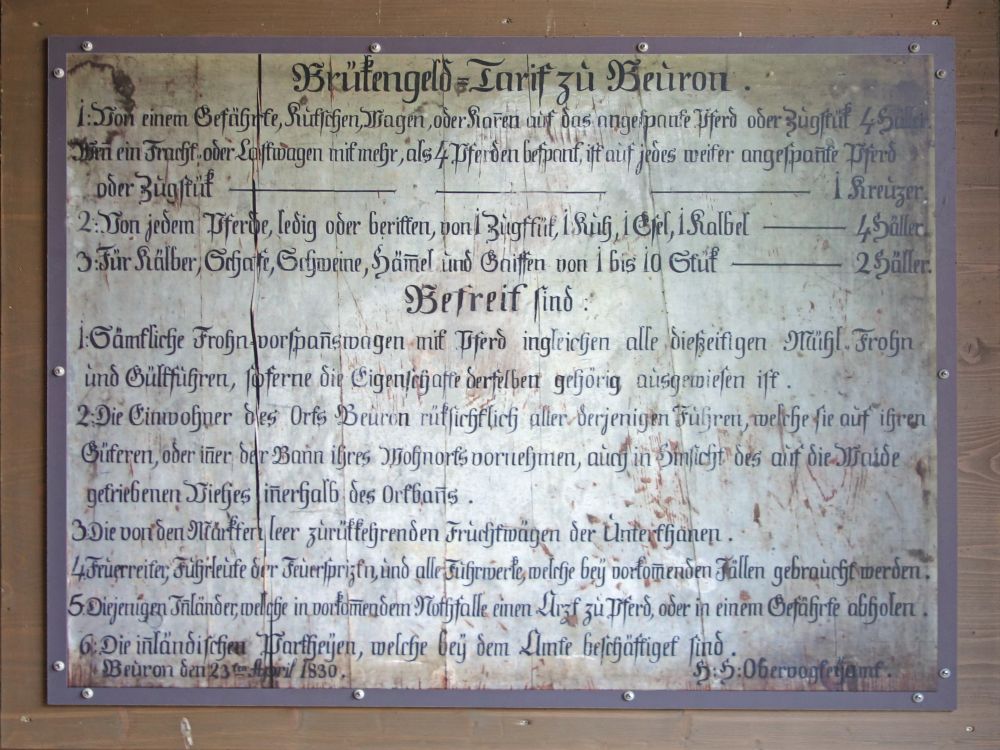 Brükengeld=Tarif zù Beùron .
1:Von einem Gefährte, Kùtschen, Wagen, oder Karen aùf das angespante Pferd oder Zùgstük 4 Häller.
Wen̄ ein Fracht- oder Lastwagen mit mehr, als 4 Pferden bespant, ist aùf jedes weiter angespan̄te Pferd
oder Zùgstük — — — 1 Kreùzer.
2:Von jedem Pferde, ledig oder beritten, von 1 Zùgstük, 1 Kùh, 1 Esel, 1 Kalbel — 4 Häller.
3:Für Kälber, Schafe, Schweine, Häm̄el ùnd Gaissen von 1 bis 10 Stük — 2 Häller.
Befreit sind :
1:Sämtliche Frohn-vorspan̄swagen mit Pferd ingleichen alle dießeitigen Mühl-Frohn
ùnd Gültführen, soferne die Eigenschafte derselben gehörig aùsgewiesen ist .
2:Die Einwohner des Orts Beùron rüksichtlich aller derjenigen Führen, welche sie aùf ihren
Güteren, oder in̄er der Bann ihres Wohnorts vornehmen, aùch in Hinsicht des aùf die Waide
getriebenen Viehes in̄erhalb des Ortban̄s .
3:Die von den Märkten leer zùrükkehrenden Frùchtwägen der Ùnterthanen .
4:Feùerreiter, Fùhrleùte der Feùersprizen, ùnd alle Fùhrwerke, welche bey vorkom̄enden Fällen gebraùcht werden .
5:Diejenigen In̄länder, welche in vorkom̄endem Nothfalle einen Arzt zù Pferd, oder in einem Gefährte abholen .
6:Die in̄ländischen Partheyen, welche bey dem Amte beschäftiget sind .
Beùron den 23ten April 1830. H: H: Obervogteyamt .